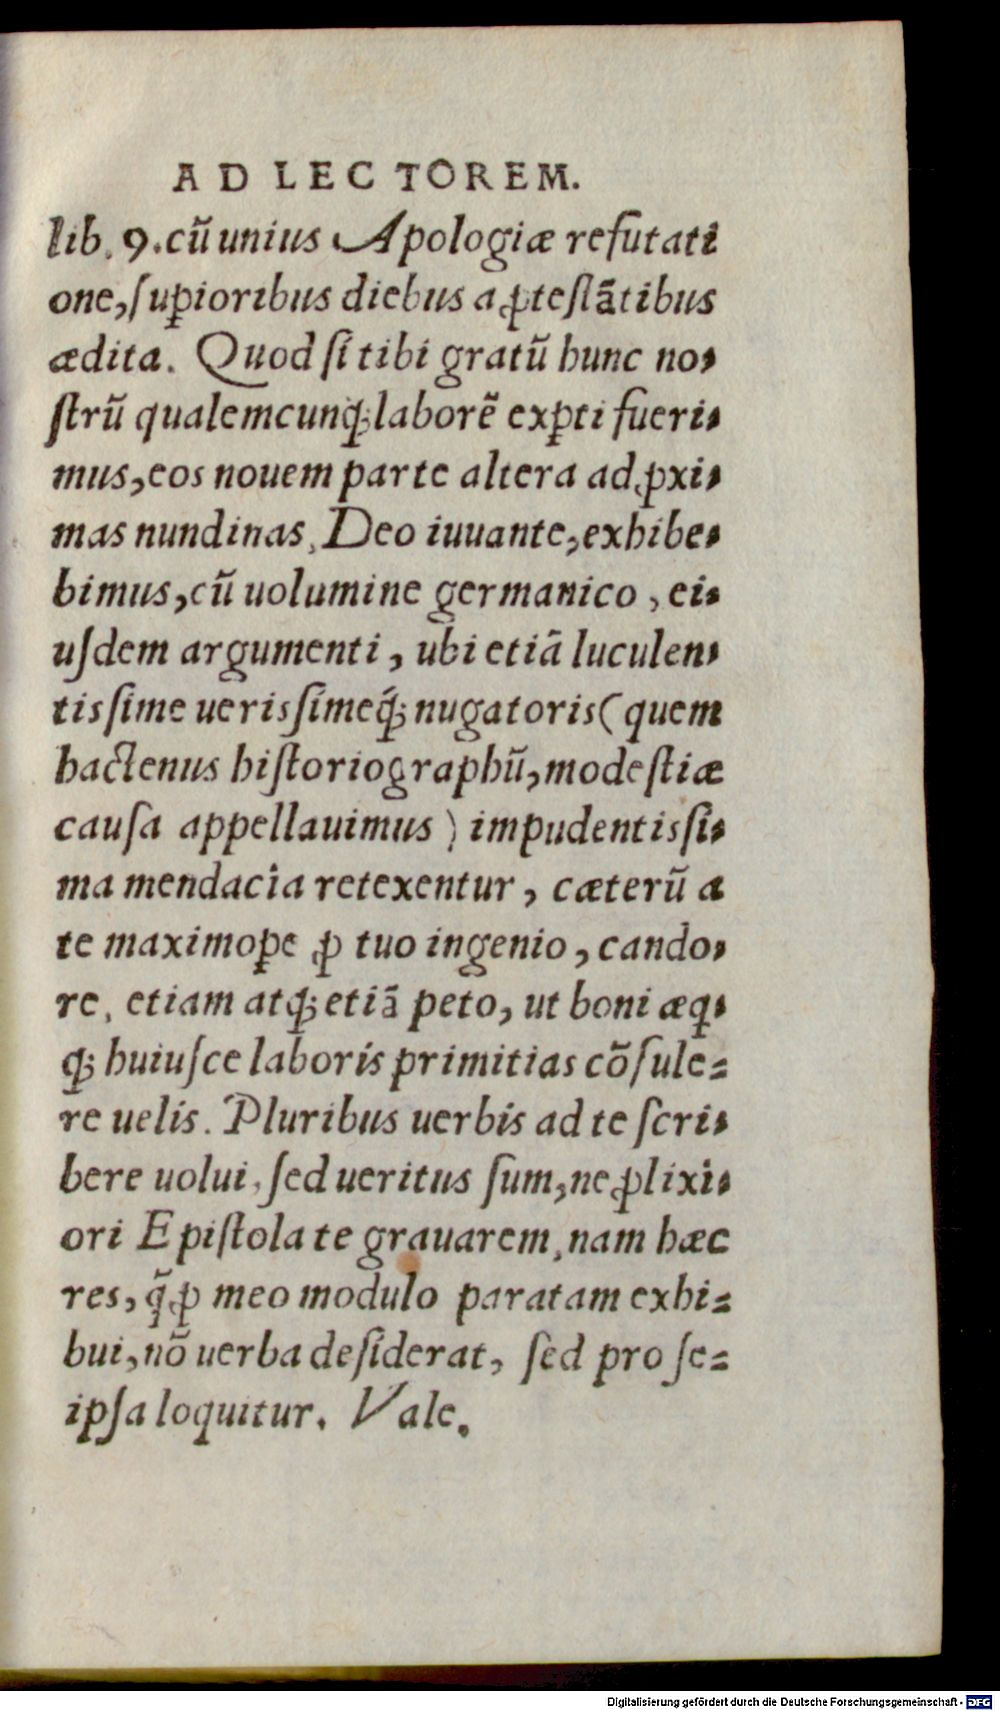 AD LECTOREM.
lib. 9. cũ unius Apologiæ refutati
one, ſuꝑioribus diebus a ꝓteſtãtibus
ædita. Quod ſi tibi gratũ hunc no⸗
ſtrũ qualemcunq́; laborẽ exꝑti fueri⸗
mus, eos nouem parte altera ad ꝓxi⸗
mas nundinas, Deo iuuante, exhibe⸗
bimus, cũ uolumine germanico, ei⸗
uſdem argumenti, ubi etiã luculen⸗
tisſime uerisſimeq́; nugatoris (quem
hactenus hiſtoriographũ, modeſtiæ
cauſa appellauimus) impudentisſi⸗
ma mendacia retexentur, cæterũ a
te maximoꝑe ꝓ tuo ingenio, cando⸗
re, etiam atq; etiã peto, ut boni æq⸗
q; huiuſce laboris primitias cõſule⸗
re uelis. Pluribus uerbis ad te ſcri⸗
bere uolui, ſed ueritus ſum, ne ꝓlixi⸗
ori Epiſtola te grauarem, nam hæc
res, q̃ ꝓ meo modulo paratam exhi⸗
bui, nõ uerba deſiderat, ſed pro ſe⸗
ipſa loquitur. Vale.
Digitalisierung gefördert durch die Deutsche Forschungsgemeinschaft - DFG